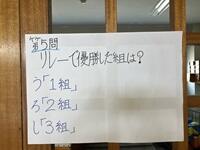 第5問
リレーで優勝した組は?
う「1組」
ろ「2組」
し「3組」